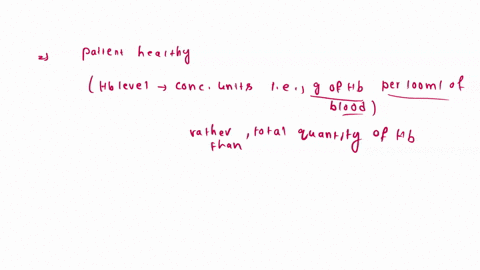 =) patient healthy
(Hb level → conc. units i.e., g of Hb per 100ml of
blood)
rather than, total quantity of Hb